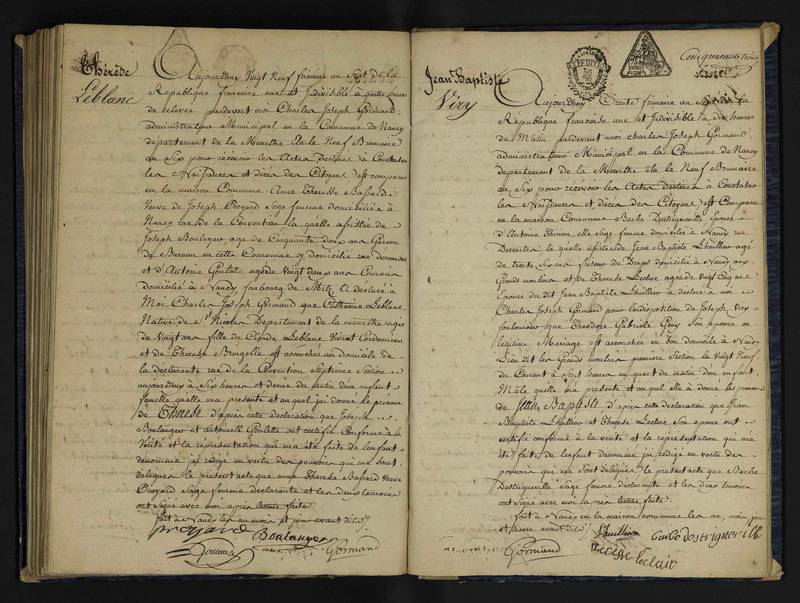 Thérèse
Leblanc
Aujourdhuy Vingt Neuf frimaire au Sept de la
République française une et Indivisible à quatre heures
de relevée pardevant moi Charles Joseph Gormand
administrateur Municipal en la Commune de Nancy
département de la Meurthe élu le Neuf Brumaire
au Six pour recevoir les Actes destinés à Constater
les Naissances et décès des Citoyens est comparue
en la maison Commune Anne Therese Bassard
Veuve de Joseph Proyard Sage femme domiciliée à
Nancy rue de la Convention la quelle assistée de
Joseph Boulanger agé de Cinquante deux ans Garcon
de Bureau en cette Commune y domicilié rue
et d'Antoine Goulette agé de Vingt deux ans Commis
domicilié à Nancy faubourg de Metz a déclaré à
Moi Charles Joseph Gormand que Catherine Leblanc
Native de St Nicolas Département de la meurthe agée
de Vingt ans fille de Claude Leblanc Vivant Cordonnier
et de Therese est accouchée au domicile de
la déclarante rue de la Convention Septieme Section
aujourdhuy à Six heures et demie du matin d'un enfant
femelle quelle ma présenté et auquel j'ai donné le prénom
de Therese d'après cette déclaration que Joseph
Boulanger et Antoine Goulette ont certifié Conforme à la
Vérité et la représentation qui ma été faite de l'enfant
dénommé j'ai rédigé en vertu des pouvoirs qui me sont
délégués le présent acte que Therese Bassard Veuve
Proyard Sage femme déclarante et les deux temoins
ont Signé avec moi après lecture faite
fait à Nancy les an mois et jour avant dits
proyard Boulanger
Gormand
Jean Baptiste
Viry
Aujourdhuy Trente frimaire au Sept de la
République française une et Indivisible à dix heures
du Matin pardevant moi Charles Joseph Gormand
administrateur Municipal en la Commune de Nancy
département de la Meurthe élu le Neuf Brumaire
au Six pour recevoir les Actes destinés à Constater
les Naissances et décès des Citoyens est Comparue
en la maison Commune Barbe Epouse
d'Antoine elle Sage femme domiciliée à Nancy rue
la quelle assistée de Jean Baptiste Lhuillier agé
de trente Six ans de Draps domicilié à Nancy aux
Grand moulins et de Therese Leclere agée de Vingt Cinq ans
Epouse du dit Jean Baptiste Lhuillier a déclaré à moi
Charles Joseph Gormand pour Indisposition de Joseph Viry
que Theodore Gabriele Geny Son épouse en
légitime Mariage est accouchée en Son domicile à Nancy
Lieu dit les Grand moulins premiere Section le Vingt Neuf
du Courant à Sept heures un quart de matin d'un enfant
Mâle quelle ma présenté et auquel elle à donné les prenoms
de Jean Baptiste d'après cette déclaration que Jean
Baptiste Lhuillier et Therese Leclere Son epouse ont
certifié conforme à la Verité et la représentation qui ma
été faite de l'enfant dénommé j'ai rédigé en vertu des
pouvoirs qui me Sont délégués le présent acte que Barbe
Sage femme déclarante et les deux temoins
ont Signé avec moi après lecture faite
fait à Nancy en la maison commune les an, mois jour
et heure avant dits
Lhuillier
Gormand Therese leclair